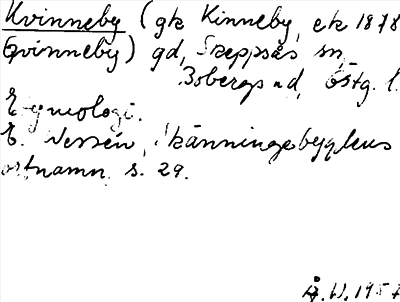 Kvinneby (gtk Kinneby, etc 1878
Qvinneby) gd, Skeppsås sn,
Bobergs hd, Östg. l.
Etymologi.
E. Wessén, Skänningebygdens
ortnamn s. 29.
Å. W. 1957